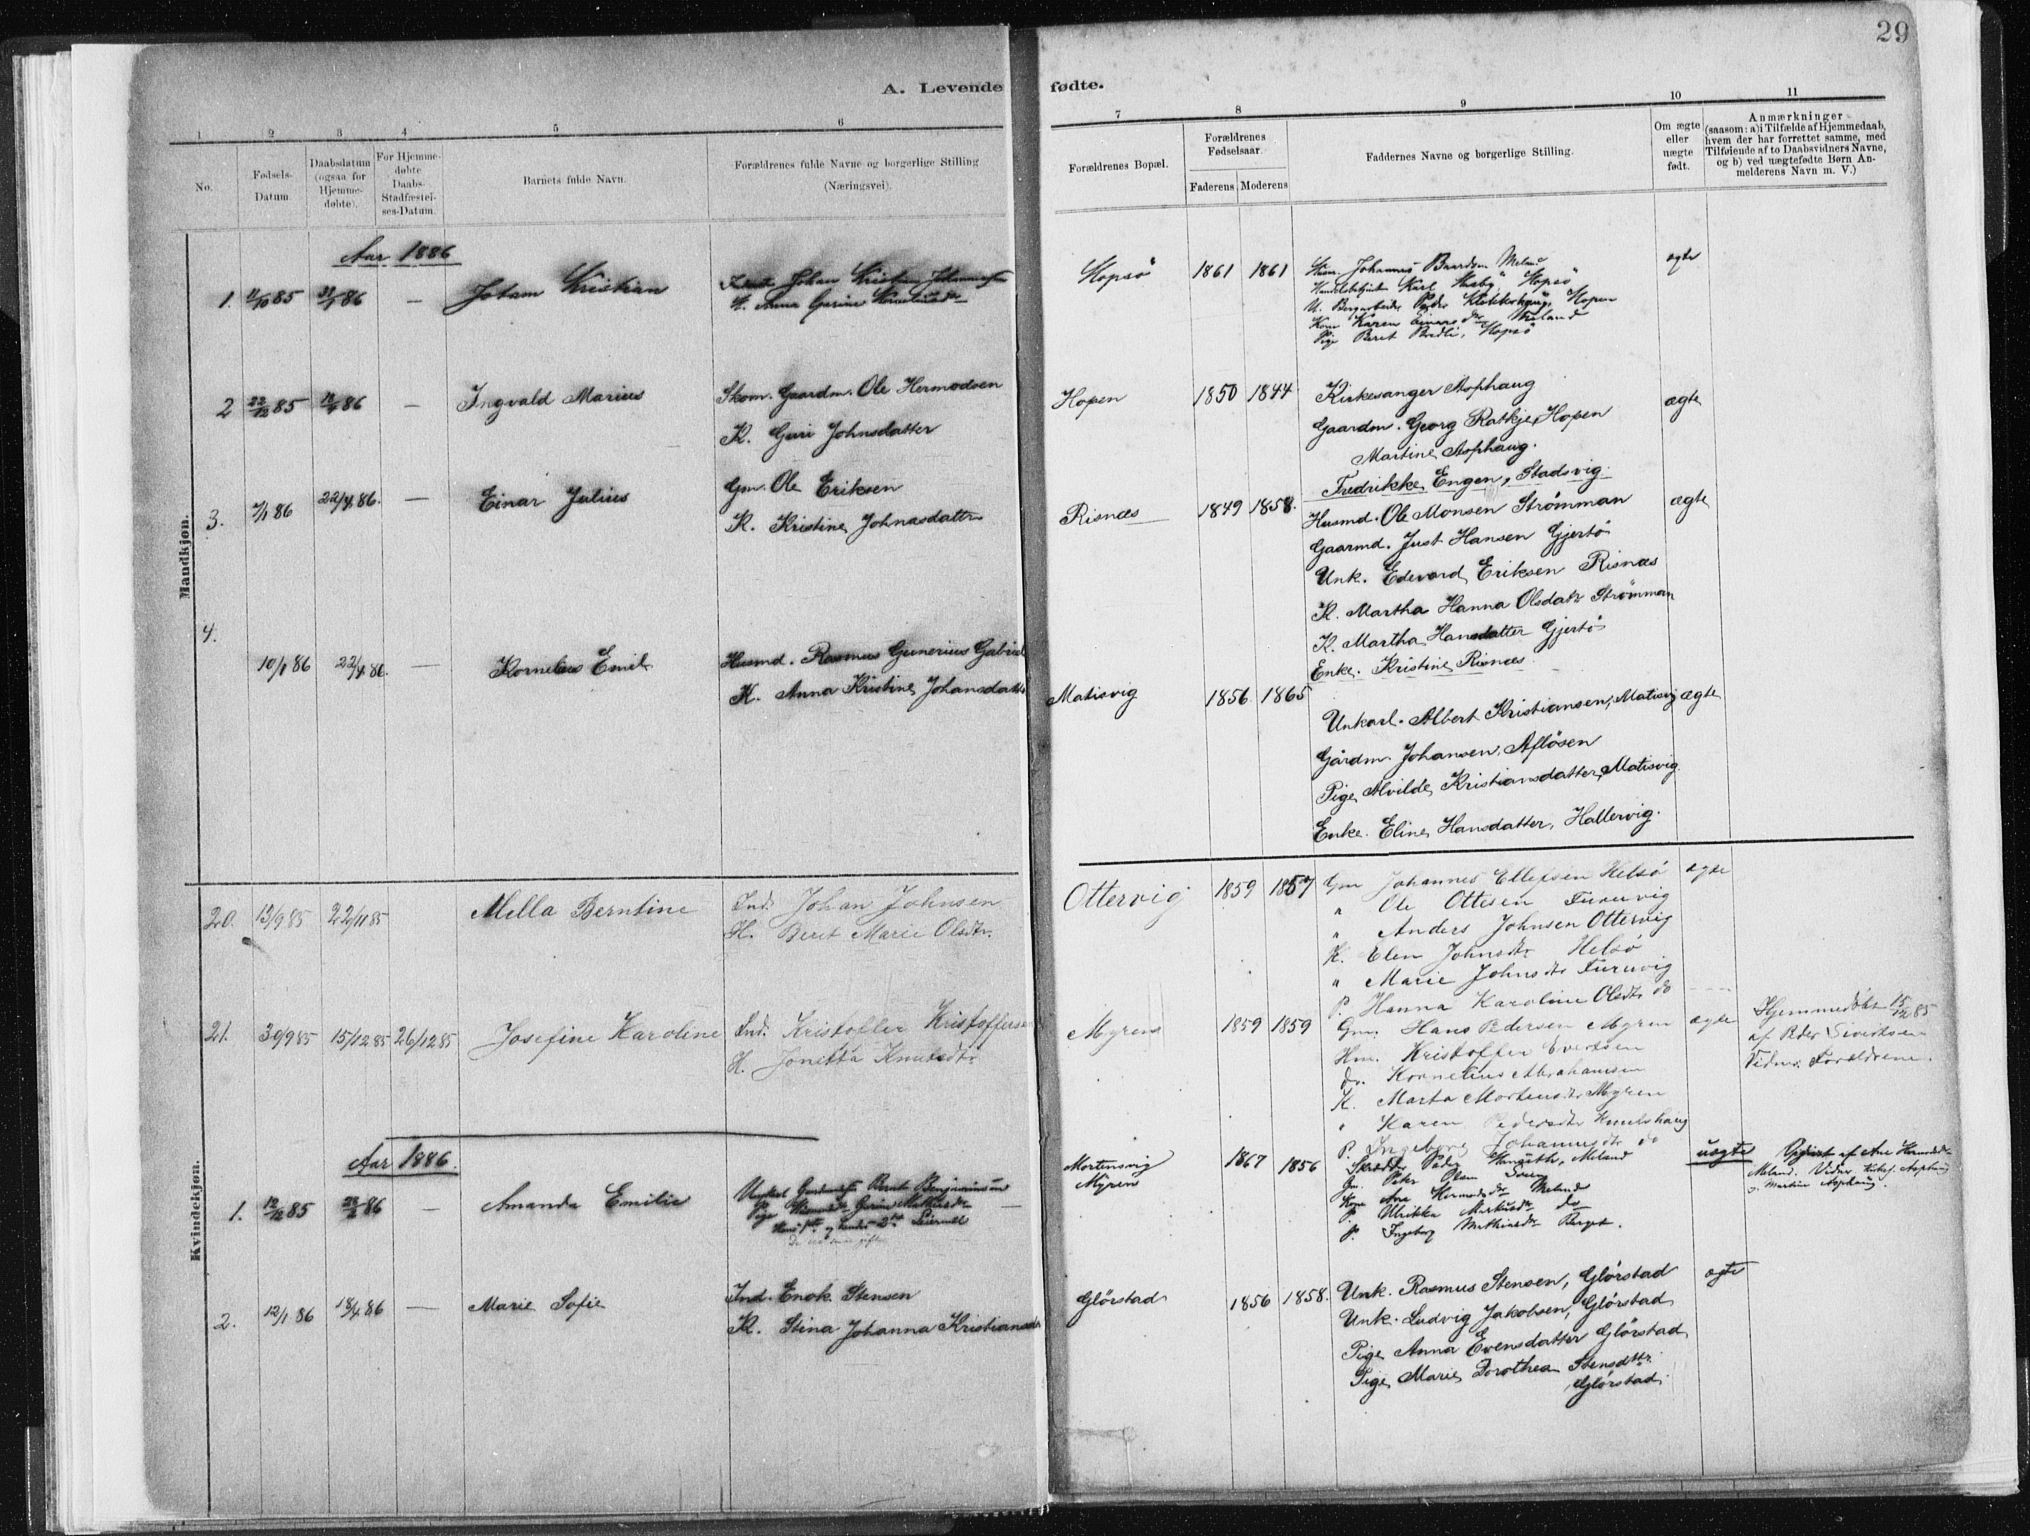 29
A. Levende fødte.
1 2 3 4 5 6 7 8 9 10 11
No.
Fødsels-
Datum.
Daabsdatum
(ogsaa for
Hjemme-
døbte).
For Hjemme-
døbte
Daabs-
Stadfæstel-
ses-Datum.
Barnets fulde Navn.
Forældrenes fulde Navne og borgerlige Stilling
(Næringsvei).
Forældrenes Bopæl.
Forældrenes
Fødselsaar.
Faderens. Moderens
Faddernes Navne og borgerlige Stilling.
Om ægte
eller
uægte
født.
Anmærkninger
(saasom: a) i Tilfælde af Hjemmedaab,
hvem der har forrettet samme, med
Tilføiende af to Daabsvidners Navne,
og b) ved uægtefødte Børn An-
melderens Navn m. V.)
Mandkjøn.
Aar 1886
1. 85 86 — Jotam Kristian
Johan Kristian
Anna Gurine
Hopsö 1861 1861
Johannes Baardsen Meland
Karl Husby, Hopsö
Peder Hopen
Kone Karen Meland
Pige Beret Hopsö
ægte
2 22/12 85 86 — Ingvald Marius
Skom. Gaardm. Ole Hermodsen
K. Guri Johnsdatter
Hopen 1850 1844
Kirkesanger Asphaug
Gaardm. Georg Ratkje, Hopen
Martine Asphaug.
Fredrikke Engen, Stadsvig.
ægte
3. 7/1 86 22/4 86. — Einar Julius
Gm. Ole Eriksen
K. Kristine Johnasdatter
Risnæs 1849 1858.
Husmd. Ole Monsen Strømman
Gaarmd. Just Hansen Gjertö
Unk. Edevard Eriksen Risnæs
K. Martha Hanna Olsdatr Strömman
K. Martha Hansdatter Gjertö
Enke. Kristine Risnæs
ægte
4. 10/1 86 22/4 86. — Kornelius Emil
Husmd. Rasmus Gunerius Gabriel
K. Anna Kristine Johansdatter
Matisvig 1856 1865
Unkarl. Albert Kristiansen, Matisvig
Gårdm Johansen, Aflösen
Pige Alvilde Kristiansdatter, Matisvig
Enke. Eline Hansdatter, Hallervig.
ægte
Kvindekjøn.
20. 13/9 85 22/11 85 Mella Berntine
Ind. Johan Johnsen
H. Beret Marie Olsdtr.
Ottervig 1859 1857
Gm Johannes Ellefsen Helsö
" Ole Ottesen Furuvig
" Anders Johnsen Ottervig
K. Elen Johnsdtr Helsö
" Marie Johnsdtr Furuvig
P. Hanna Karoline Olsdtr do
ægte
21. 30/9 85 15/12 85 26/12 85 Josefine Karoline
Ind. Kristoffer Kristoffersen
H. Jonetta Knutsdtr.
Myren 1859 1859
Gm. Hans Pedersen Myren
Hm. Kristoffer Evertsen
do. Kornelius Abrahamsen
K. Marta Mortensdtr Myren
" Karen Pedersdtr Knutshaug
P. Ingeborg Johannesdtr do
ægte
Hjemmedøbt 15/12 85
af Peder Sivertsen
Vidner: Forældrene.
Aar 1886.
1. 12/12 85 86 — Amanda Emilie
Ungkarl Bernt Benjaminsen
Pige Gurine Mathisdtr
Leiermål
Mortensvig
Myren
1867 1856
Skrædder Peder Meland
Gm. Peter Olsen
Kone Ane Hermodsdtr Meland
P. Ulrikka Markusdtr do
P. Ingeborg Mathisdtr Berget.
uægte
Opgivet af Ane Hermodsdtr
Meland. Vidner Kirkes. Asphaug
o. Martine Asphaug.
2. 12/1 86 18/4 86 — Marie Sofie
Ind. Enok Stensen
K. Stina Johanna Kristiansdtr
Glörstad 1856 1858.
Unk. Rasmus Stensen, Glörstad
Unk. Ludvig Jakobsen, Glörstad
Pige Anna Evensdatter Glörstad
Pige Marie Dorothea Stensdttr.
Glörstad.
ægte